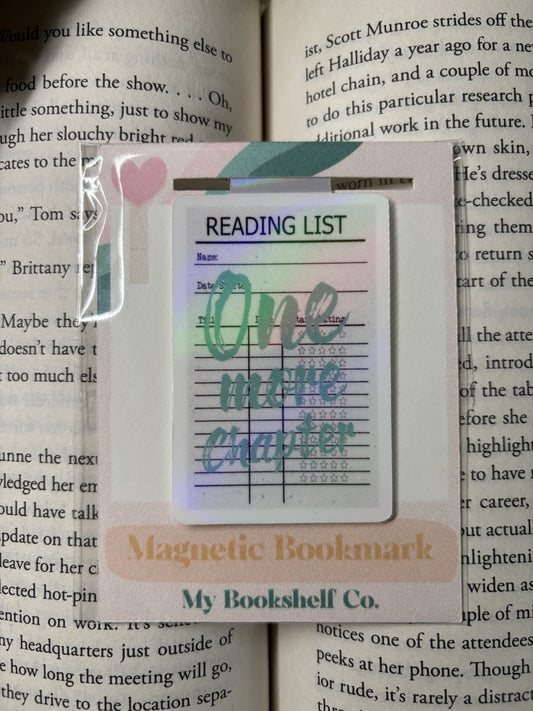 Would you like something else to
food before the show. . . . Oh,
ittle something, just to show my
ugh her slouchy bright red
cates to the
ou,” Tom says
” Brittany
Maybe they’
doesn’t have t
t too much els
unne the next
wledged her em
ould have talk
update on that
leave for her cl
lected hot-pin
ention on work. It’s
ny headquarters just outside of
e how long the meeting will go,
they drive to the location sepa-
ist, Scott Munroe strides off the
left Halliday a year ago for a ne
hotel chain, and a couple of mo
to do this particular research p
ditional work in the future. I
own skin,
worn in
He’s dresse
e-checked
ring them
o return s
tart of the
ll the atte
d, introd
of the tab
efore she
highlight
e to have
r career,
out actual
nlighteni
widen as
uple of mi
notices one of the attendees
peeks at her phone. Though
ior rude, it’s rarely a distract
READING LIST
Name:
Date Started:
One
more
chapter
Magnetic Bookmark
My Bookshelf Co.